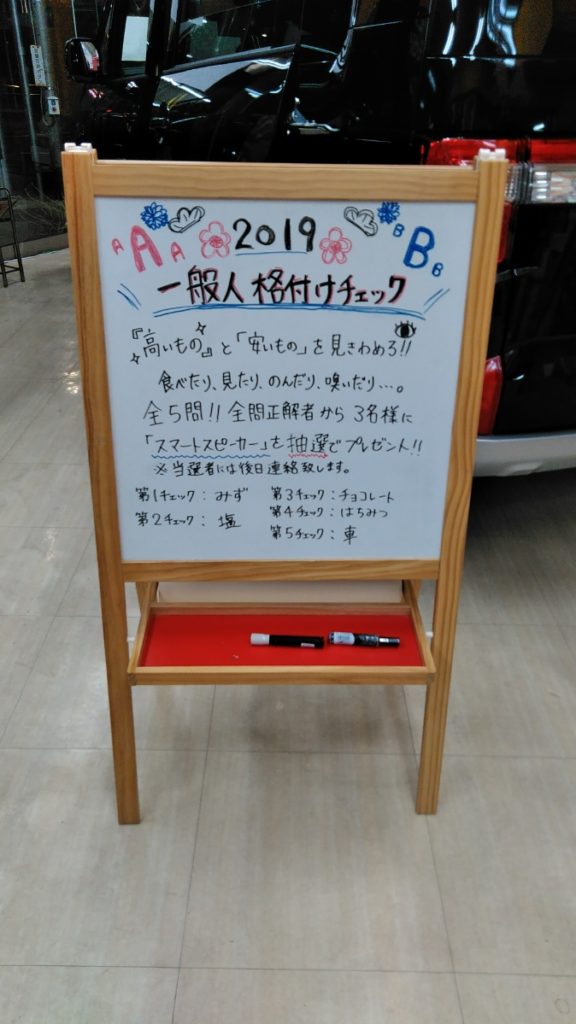 AAA 2019 BBB
一般人 格付けチェック
『高いもの』と「安いもの」を見きわめろ!!
食べたり、見たり、のんだり、嗅いだり…。
全5問!! 全問正解者から 3名様に
「スマートスピーカー」を抽選でプレゼント!!
※当選者には後日連絡致します。
第1チェック:みず 第3チェック:チョコレート
第2チェック:塩 第4チェック:はちみつ
第5チェック:車